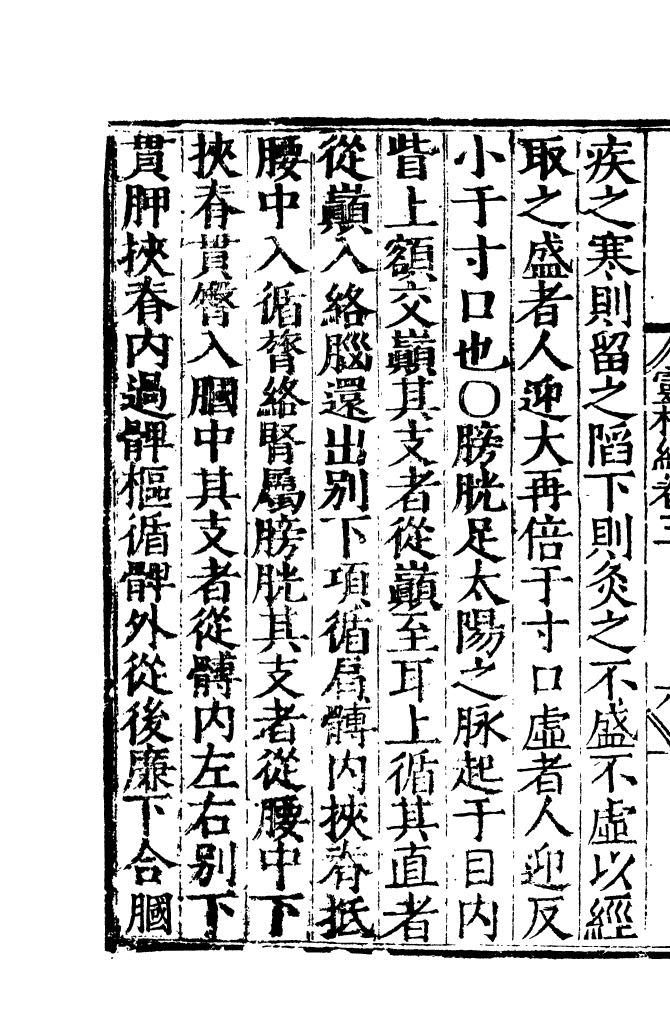 疾之寒則留之陷下則灸之不盛不虛以經
取之盛者人迎大再倍于寸口虛者人迎反
小于寸口也〇膀胱足太陽之脉起于目內
眥上額交巔其支者從巔至耳上循其直者
從巔入絡腦還出别下項循肩髆內挾脊抵
腰中入循膂絡腎屬膀胱其支者從腰中下
挾脊貫臀入膕中其支者從髆內左右别下
貫胛挾脊內過髀樞循髀外從後廉下合膕